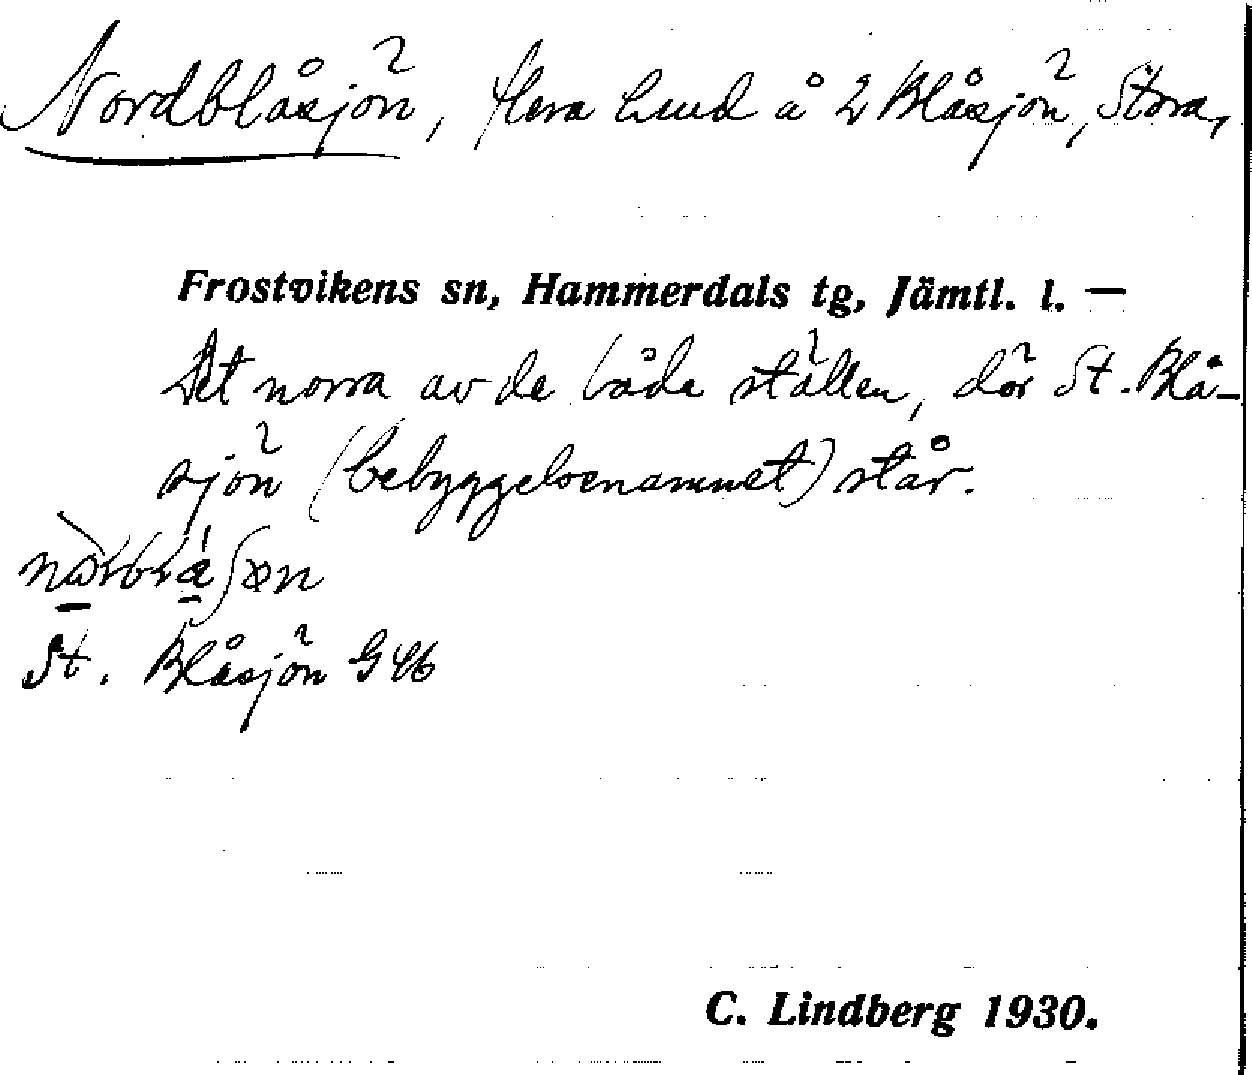 Nordblåsjön, flera hmd å 2 Blåsjön, Stora,
Frostvikens sn, Hammerdals tg, Jämtl. l. —
Det norra av de både ställen, där St. Blå-
sjön (bebyggelsenamnet) står.
St. Blåsjön G46
C. Lindberg 1930.